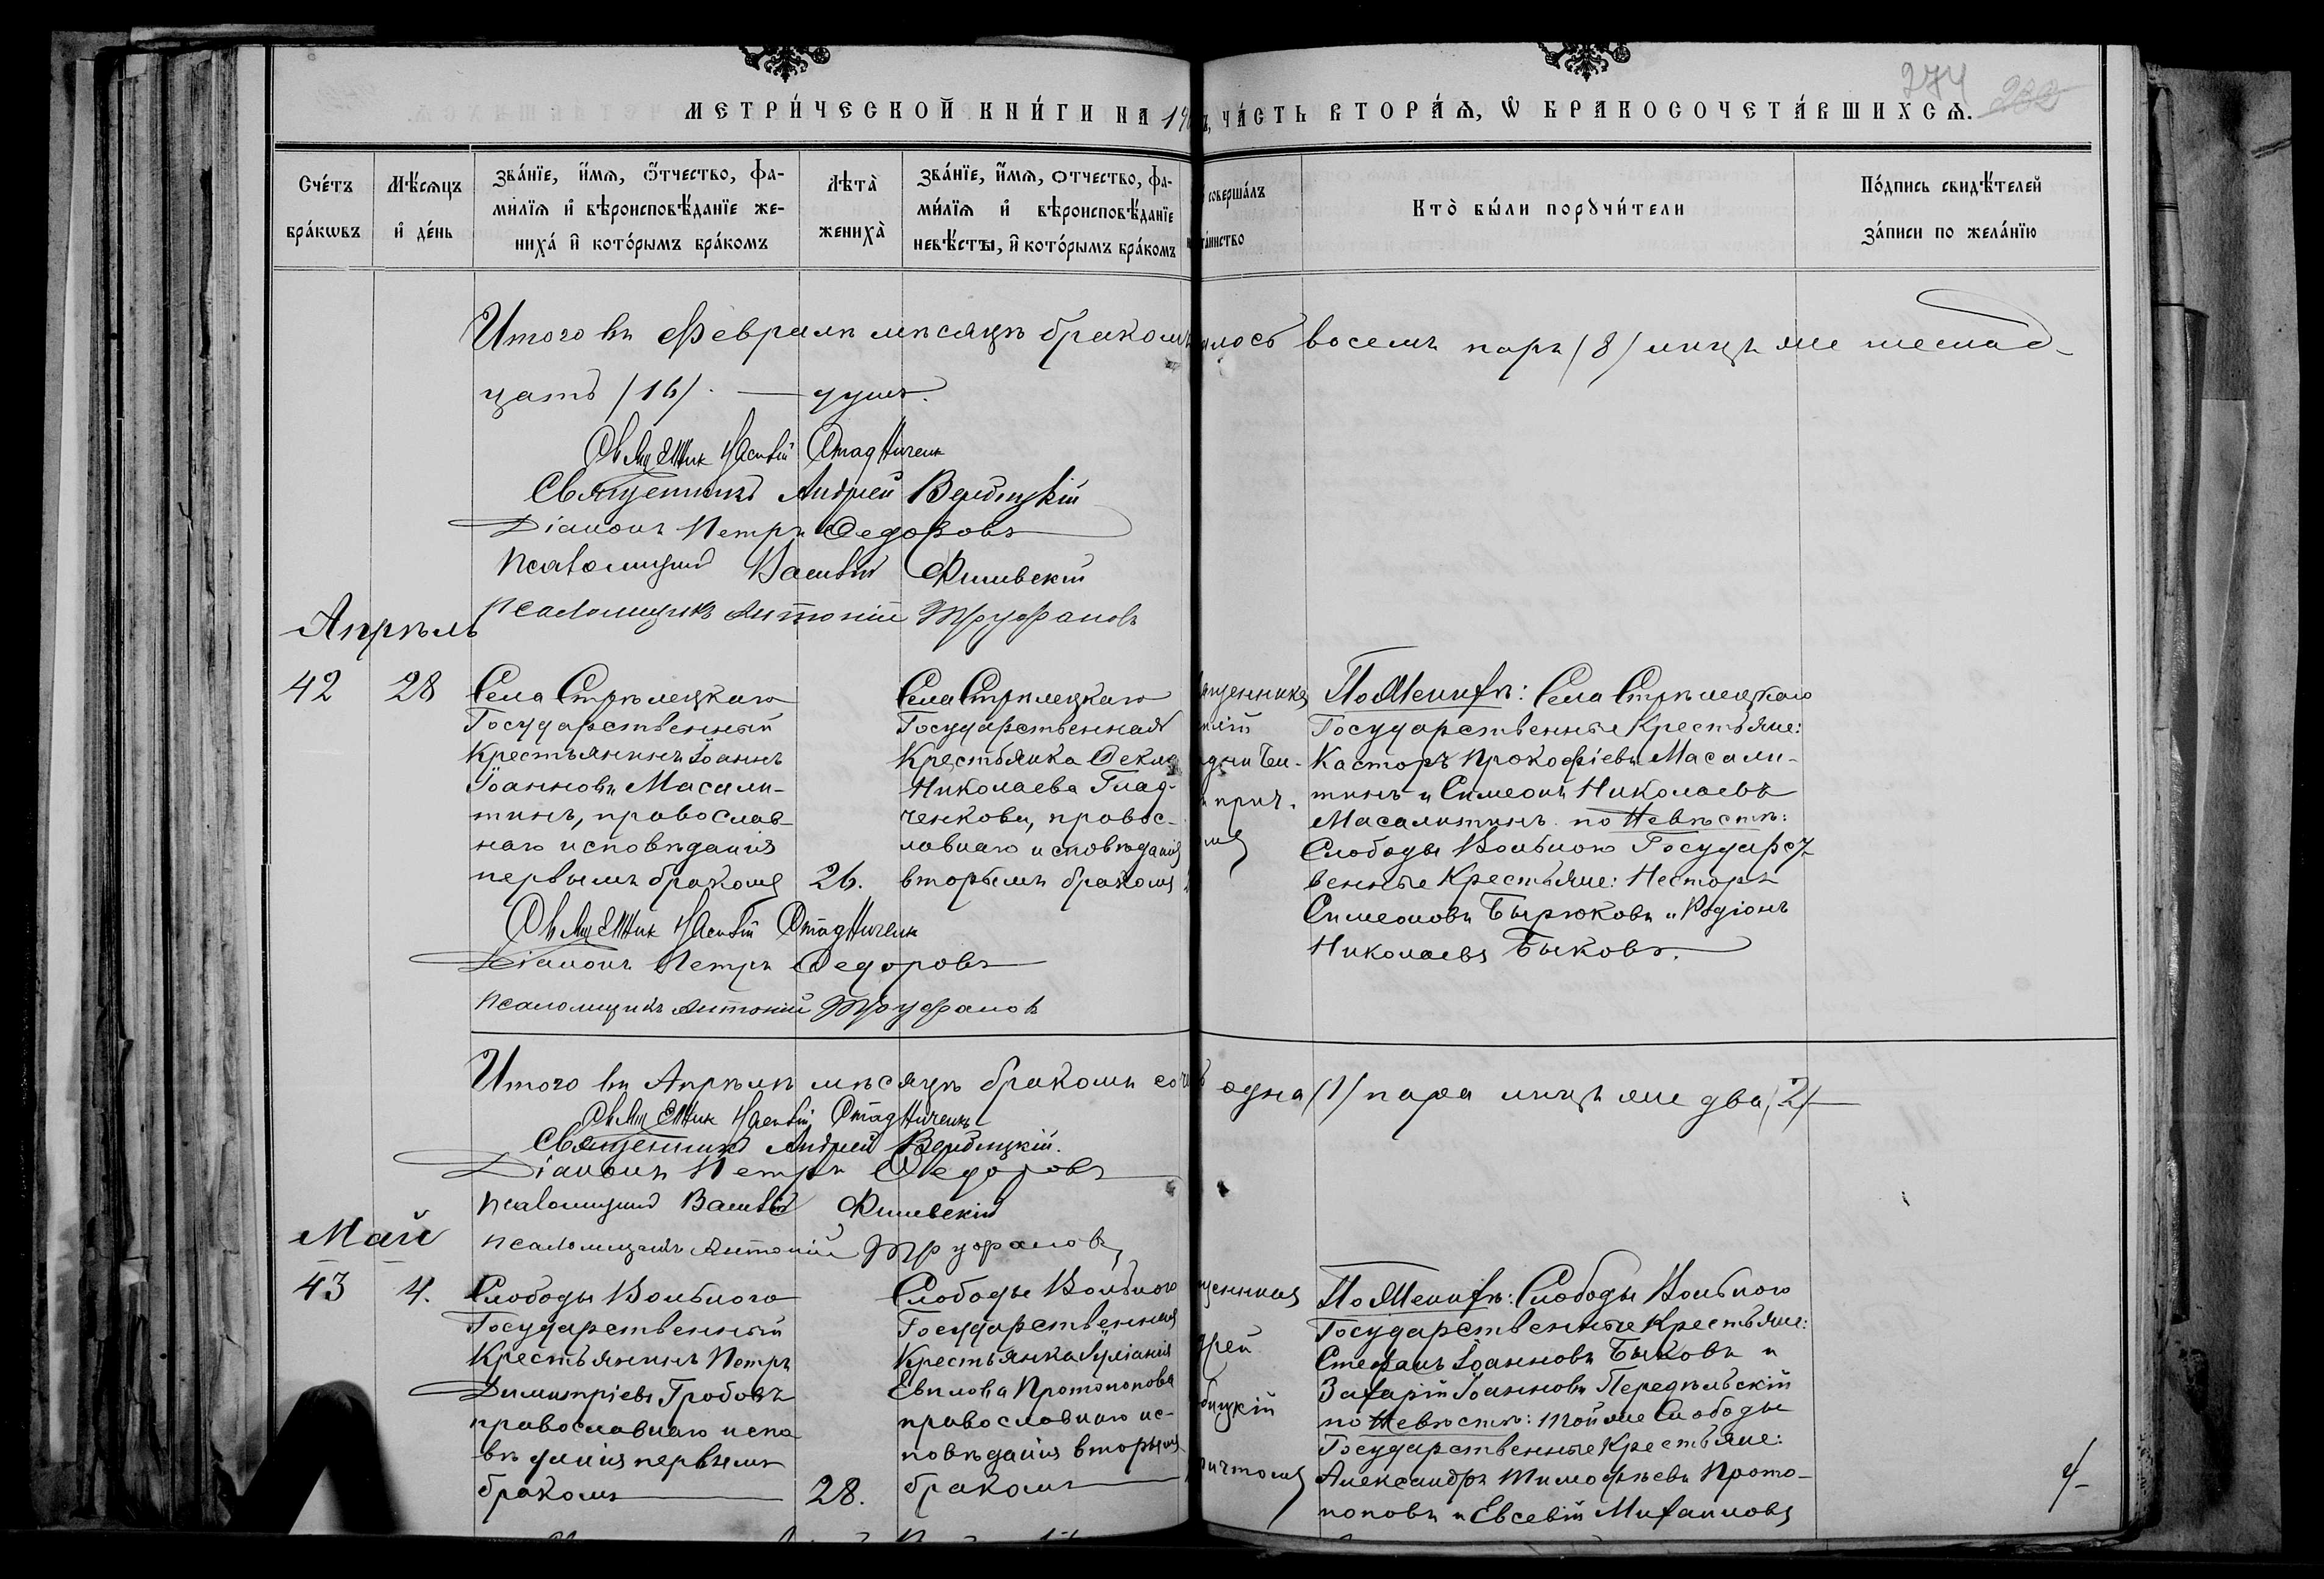 274
232
МЕТРИ́ЧЕСКОЙ КНИ́ГИ НА 19
ЧА́СТЬ ВТОРА́Ѧ, Ѡ БРАКОСОЧЕТА́ВШИХСѦ.
Сче́тъ бра́кѡвъ
Мѣ́сѧцъ и҆ де́нь
Зва́нїе, и҆́мѧ, ѻ҆́тчество, фа-
ми́лїѧ и҆ вѣроисповѣ́данїе же-
ниха̀ и҆ кото́рымъ бра́комъ
Лѣта̀ жениха̀
Зва́нїе, и҆́мѧ, ѻтчество, фа-
ми́лїѧ и҆ вѣроисповѣ́данїе
невѣ́сты, и҆ кото́рымъ бра́комъ
соверша́лъ
та́инство
Кто̀ бы́ли порꙋчи́тели
По́дпись свидѣ́телей
за́писи по жела́нїю
Итого въ Февралѣ мѣсяцѣ бракомъ
лось восемь паръ (8) лицъ же шестнад-
цать (16) душъ.
Священник Василій Стадниченк
Священникъ Андрей Вербицкій
Діаконъ Петръ Федоровъ
Псаломщикъ Василій Филевскій
Псаломщикъ Антоній Труфановъ
Апрѣль
42
28
Села Стрѣлецкаго
Государственный
Крестьянинъ Іоаннъ
Іоанновъ Масали-
тинъ, православ-
наго исповѣданія
первымъ бракомъ
26.
Села Стрѣлецкаго
Государственная
Крестьянка Фекла
Николаева Глад-
ченкова, правос-
лавнаго исповѣданія
вторымъ бракомъ
щенникъ
илій
дничен-
прич.
мъ
По Женихѣ: Села Стрѣлецкаго
Государственные Крестьяне:
Касторъ Прокофіевъ Масали-
тинъ и Симеонъ Николаевъ
Масалитинъ по Невѣстѣ:
Слободы Вольного Государст-
венные Крестьяне: Несторъ
Симеоновъ Бырюковъ и Родіонъ
Николаевъ Быковъ.
Священник Василій Стадниченк
Діаконъ Петръ Федоровъ
Псаломщикъ Антоній Труфановъ
Итого въ Апрѣлѣ мѣсяцѣ бракомъ соч
одна (1) пара лицъ же два (2)
Священник Василій Стадниченк
Священникъ Андрей Вербицкій.
Діаконъ Петръ Федоровъ
Псаломщикъ Василій Филевскій
Псаломщикъ Антоній Труфановъ
Май
43
4.
Слободы Вольного
Государственный
Крестьянинъ Петръ
Димитріевъ Гробовъ
православнаго испо
вѣданія первымъ
бракомъ
28.
Слободы Вольного
Государственная
Крестьянка Іуліанія
Евимова Протопопова
православнаго ис-
повѣданія вторымъ
бракомъ
щенникъ
дрей
бицкій
ричтомъ
По Женихѣ: Слободы Вольного
Государственные Крестьяне:
Стефанъ Іоанновъ Быковъ и
Захарій Іоанновъ Передѣльскій
по Невѣстѣ: той же Слободы
Государственные Крестьяне:
Александръ Тимофѣевъ Прото-
поповъ и Евсевій Михаиловъ